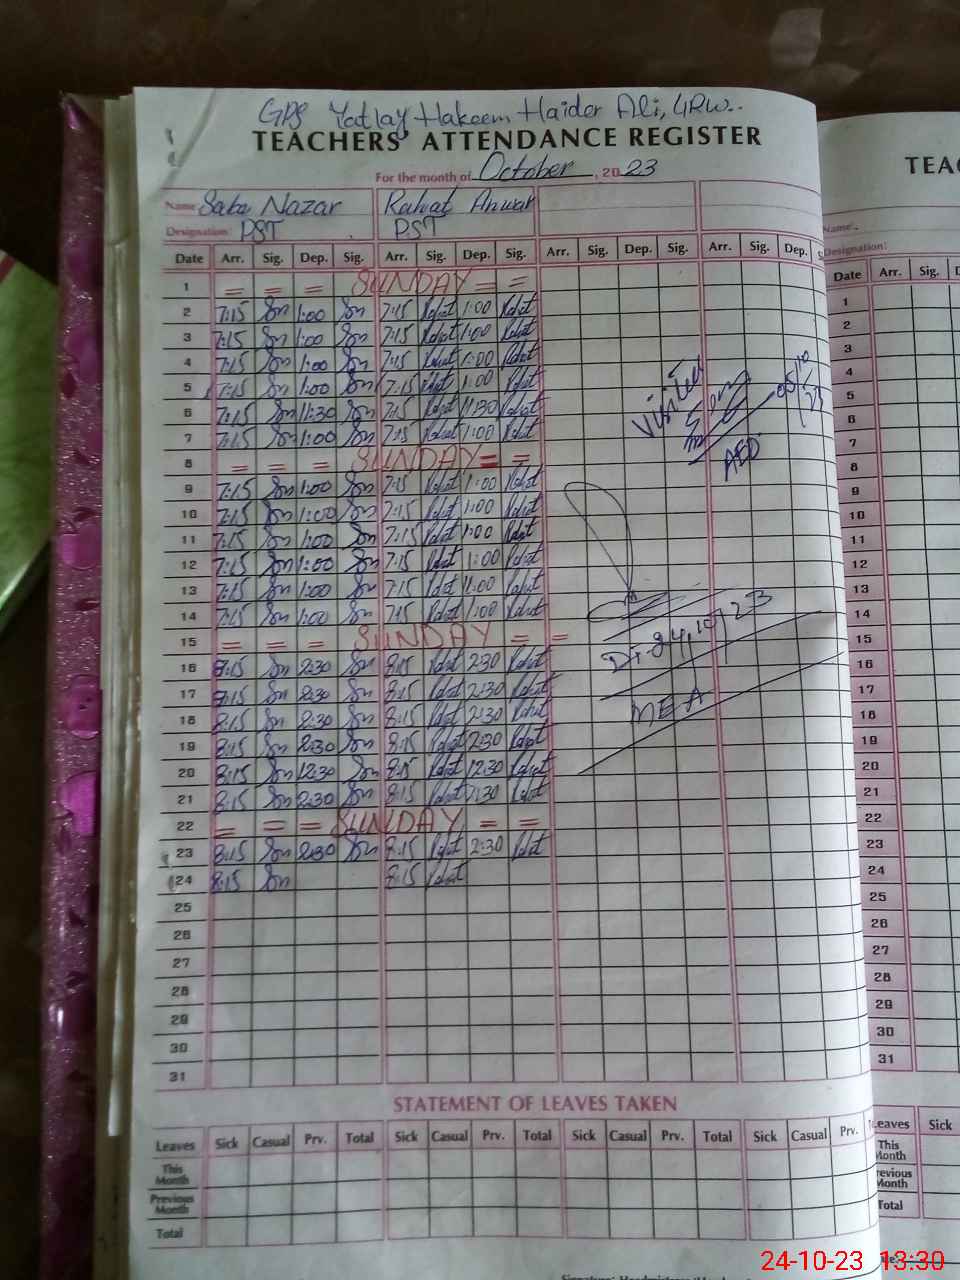 GPS Yatlay Hakeem Haider Ali, GRW..
TEACHERS' ATTENDANCE REGISTER
For the month of October, 2023
Name Saba Nazar Rahat Anwar
Designation: PST PST
Date Arr. Sig. Dep. Sig. Arr. Sig. Dep. Sig. Arr. Sig. Dep. Sig. Arr. Sig. Dep.
1 = = = SUNDAY = =
2 7:15 1:00 7:15 Rahat 1:00 Rahat
3 7:15 1:00 7:15 Rahat 1:00 Rahat
4 7:15 1:00 7:15 Rahat 1:00 Rahat
5 7:15 1:00 7:15 Rahat 1:00 Rahat
6 7:15 11:30 7:15 Rahat 11:30 Rahat
7 7:15 1:00 7:15 Rahat 1:00 Rahat
8 = = = SUNDAY = =
9 7:15 1:00 7:15 Rahat 1:00 Rahat
10 7:15 1:00 7:15 Rahat 1:00 Rahat
11 7:15 1:00 7:15 Rahat 1:00 Rahat
12 7:15 1:00 7:15 Rahat 1:00 Rahat
13 7:15 1:00 7:15 Rahat 11:00 Rahat
14 7:15 1:00 7:15 Rahat 1:00 Rahat
15 = = = SUNDAY = =
16 8:15 2:30 8:15 Rahat 2:30 Rahat
17 8:15 2:30 8:15 Rahat 2:30 Rahat
18 8:15 2:30 8:15 Rahat 2:30 Rahat
19 8:15 2:30 8:15 Rahat 2:30 Rahat
20 8:15 12:30 8:15 Rahat 12:30 Rahat
21 8:15 2:30 8:15 Rahat 2:30 Rahat
22 = = = SUNDAY = =
23 8:15 2:30 8:15 Rahat 2:30 Rahat
24 8:15 8:15 Rahat
25
26
27
28
29
30
31
Visited
05/10/23
AEO
Dt-24,10,23
MEA
STATEMENT OF LEAVES TAKEN
Leaves Sick Casual Prv. Total Sick Casual Prv. Total Sick Casual Prv. Total Sick Casual Prv.
This Month
Previous Month
Total
TEAC
Name:
Designation:
Date Arr. Sig.
1
2
3
4
5
6
7
8
9
10
11
12
13
14
15
16
17
18
19
20
21
22
23
24
25
26
27
28
29
30
31
Leaves Sick
This Month
Previous Month
Total
24-10-23 13:30